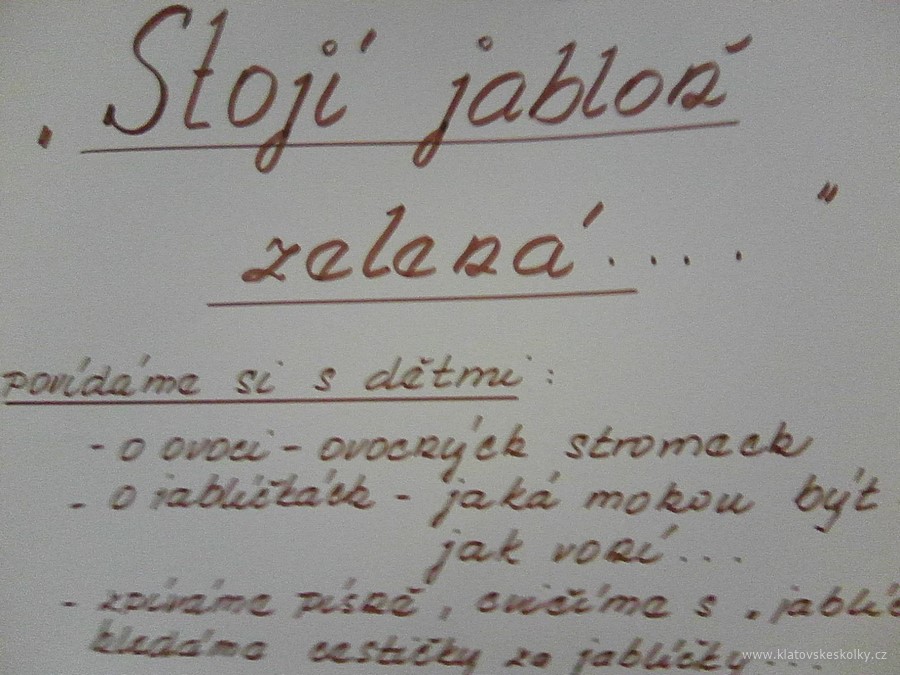 „Stojí jabloň
zelená....“
povídáme si s dětmi:
- o ovoci - ovocných stromech
- o jablíčkách - jaká mohou být
jak voní...
- zpíváme písně, cvičíme s „jablíč
hledáme cestičky za jablíčky...
www.klatovskeskolky.cz